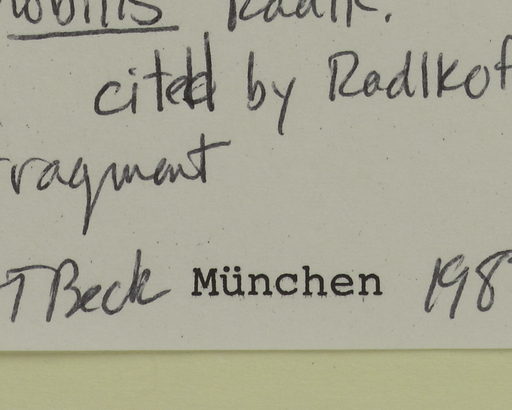 nobilis Radlk.
cited by Radlkof
ragment
T Beck München 198